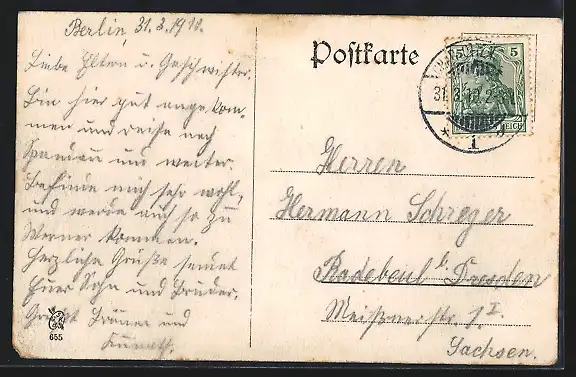 Berlin, 31.3.1910.
Liebe Eltern u. Geschwister.
Bin hier gut angekom-
men und reise nach
Spandau um weiter.
Befinde mich sehr wohl,
und werde auch so zu
Werner kommen.
Herzliche Grüße sendet
Euer Sohn und Bruder.
Gruß und
655
Postkarte
5
REICH
31.3.10.2
* 1
Herren
Hermann Schreyer
Radebeul b. Dresden
Meißnerstr. 1.I
Sachsen.